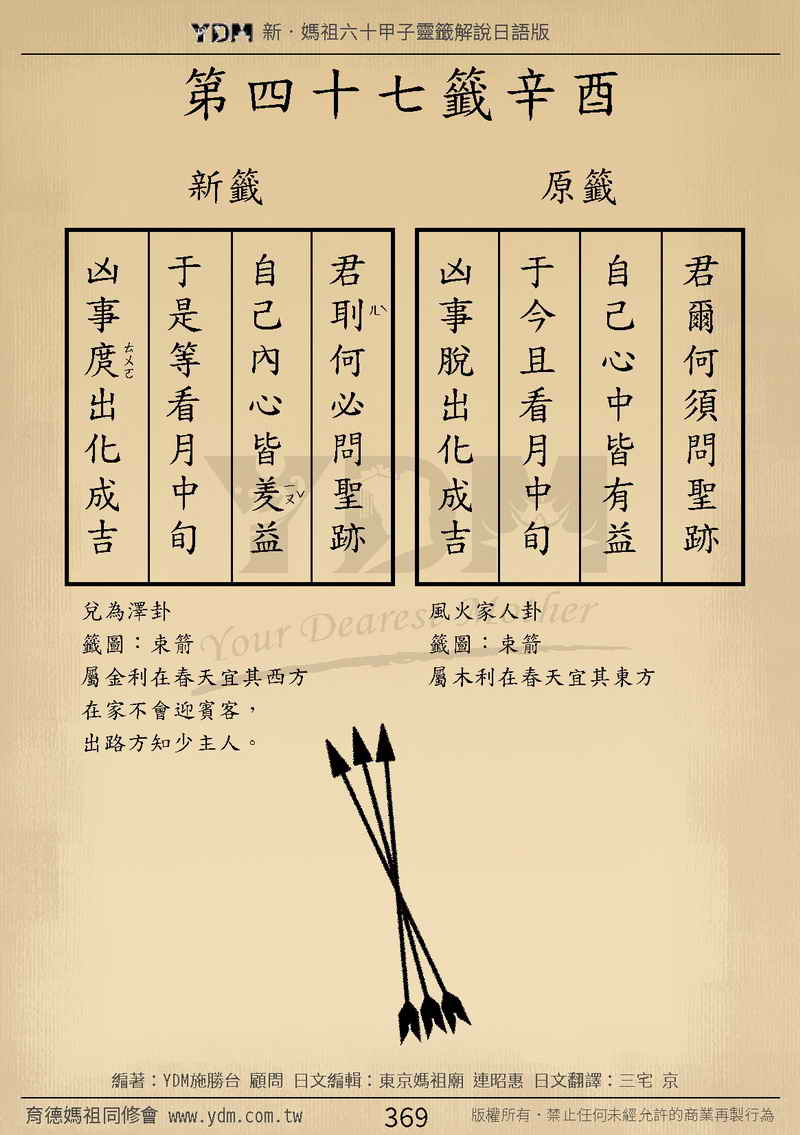 YDM 新．媽祖六十甲子靈籤解說日語版
第四十七籤辛酉
原籤
君爾何須問聖跡
自己心中皆有益
于今且看月中旬
凶事脫出化成吉
風火家人卦
籤圖：束箭
屬木利在春天宜其東方
新籤
君刵ㄦˋ何必問聖跡
自己內心皆羑ㄧㄡˇ益
于是等看月中旬
凶事庹ㄊㄨㄛ出化成吉
兌為澤卦
籤圖：束箭
屬金利在春天宜其西方
在家不會迎賓客，
出路方知少主人。
YDM
Your Dearest Mother
編著：YDM施勝台 顧問 日文編輯：東京媽祖廟 連昭惠 日文翻譯：三宅 京
育德媽祖同修會 www.ydm.com.tw
369
版權所有．禁止任何未經允許的商業再製行為